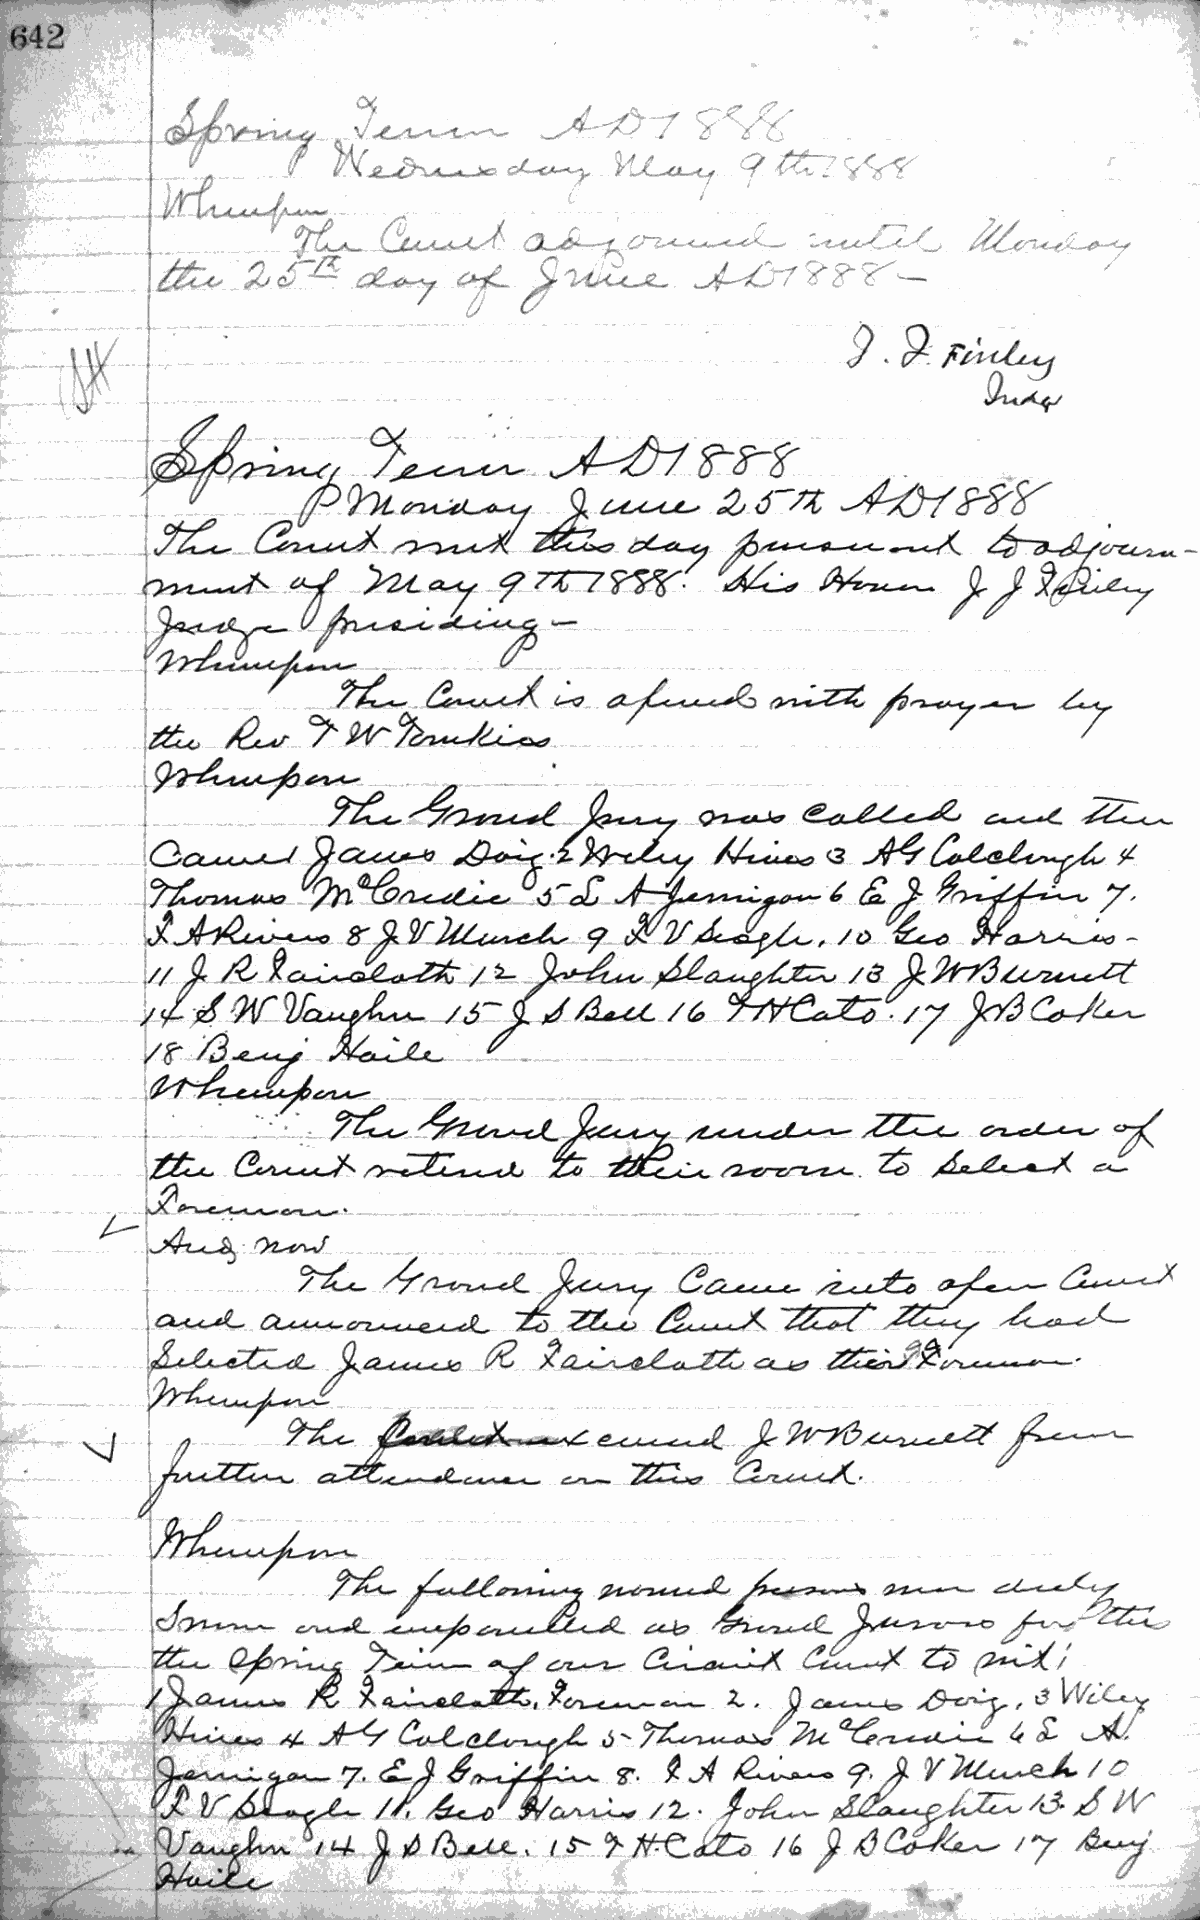 642
Spring Term AD 1888
Wednesday May 9th 1888
Whereupon
The Court adjourned until Monday
the 25th day of June AD 1888 —
J. J. Finley
Judge
Spring Term AD 1888
Monday June 25th AD 1888
The Court met this day pursuant to adjourn-
ment of May 9th 1888. His Honor J J Finley
Judge presiding —
Whereupon
The Court is opened with prayer by
the Rev T W Tomkies
Whereupon
The Grand Jury was called and then
Came 1 James Doig. 2 Wiley Hines 3 AG Colclough 4
Thomas McCredie 5 L A Jernigan 6 E J Griffin 7.
F A Rivers 8 J V Murch 9 F V Seagle. 10 Geo Harris -
11 J R Faircloth 12 John Slaughter 13 J W Burnett
14 S W Vaughn 15 J S Bell 16 T H Cato. 17 J B Coker
18 Benj Haile
Whereupon
The Grand Jury under the order of
the Court retired to their room to Select a
Foreman.
And now
The Grand Jury Came into open Court
and announced to the Court that they had
Selected James R Faircloth as their Foreman.
Whereupon
The Court excused J W Burnett from
further attendance on this Court.
Whereupon
The following named persons were duly
Sworn and empanelled as Grand Jurors for this
the Spring Term of our Circuit Court to wit;
1 James R Faircloth, Foreman 2. James Doig, 3 Wiley
Hines 4 AG Colclough 5 Thomas McCredie 6 L A.
Jernigan 7. E J Griffin 8. F A Rivers 9. J V Murch 10
F V Seagle 11. Geo Harris 12. John Slaughter 13. S W
Vaughn 14 J S Bell. 15 T H. Cato 16 J B Coker 17 Benj
Haile